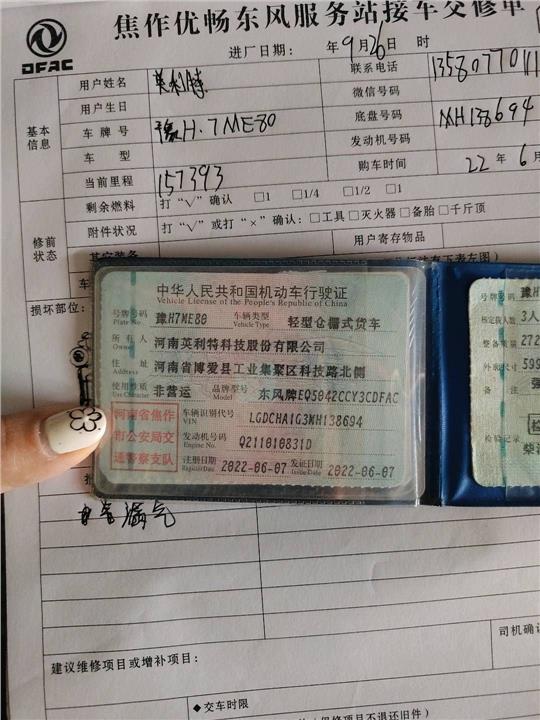 焦作优畅东风服务站接车交修单
DFAC
进厂日期: 年9月26日 时
用户姓名 英利特 联系电话
用户生日 微信号码
基本信息
车牌号 豫H·7ME80 底盘号码 MH138694
车型 发动机号码
当前里程 157393 购车时间 22年6月
修前状态
剩余燃料 打“√”确认 □1 □1/4 □1/2 □1
附件状况 打“√”或打“×”确认:□工具□灭火器□备胎□千斤顶
用户寄存物品
损坏部位:
中华人民共和国机动车行驶证
Vehicle License of the People's Republic of China
号牌号码 豫H7ME80 车辆类型 轻型仓栅式货车
Plate No. Vehicle Type
所有人 河南英利特科技股份有限公司
Owner
住址 河南省博爱县工业集聚区科技路北侧
Address
使用性质 非营运 品牌型号 东风牌EQ5042CCY3CDFAC
Use Character Model
河南省焦作
市公安局交
通警察支队
车辆识别代号 LGDCHA1G3NH138694
VIN
发动机号码 Q211010831D
Engine No.
注册日期 2022-06-07 发证日期 2022-06-07
Register Date Issue Date
号牌号码
核定载人数 3人
整备质量
外廓尺寸
备注
检验记录
漏气
建议维修项目或增补项目:
司机确认
◆交车时限